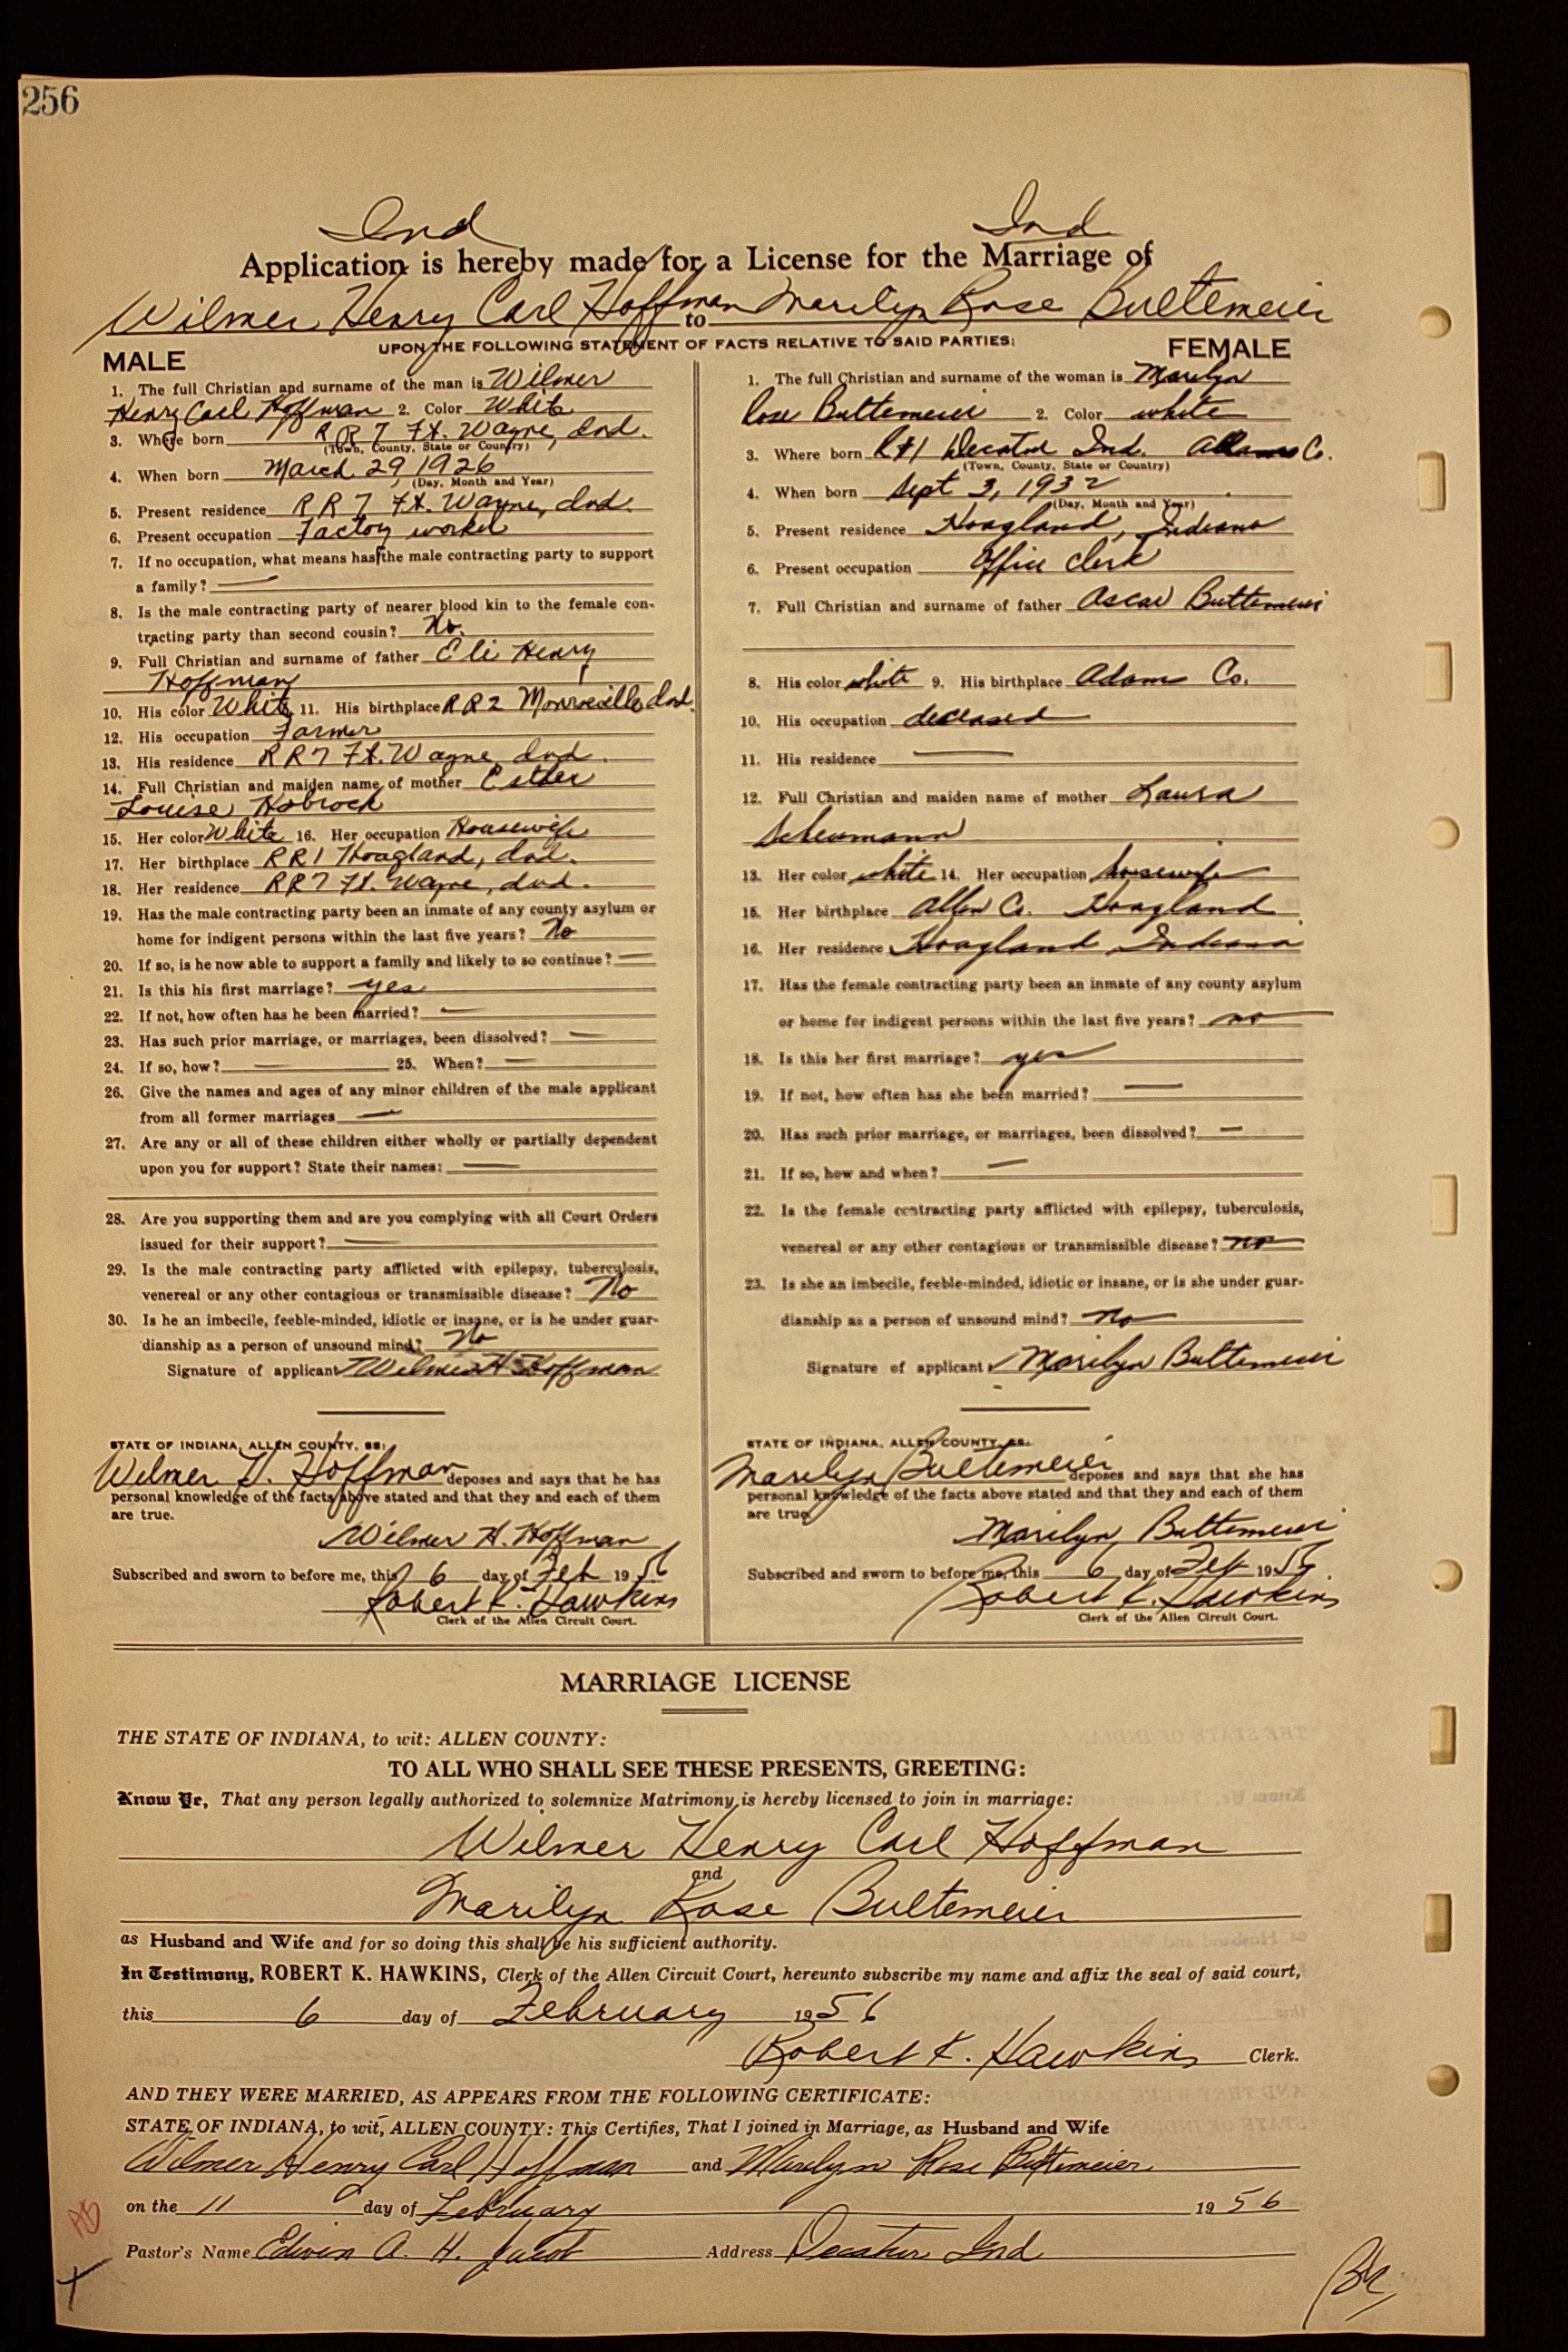 256
Ind Ind
Application is hereby made for a License for the Marriage of
Wilmer Henry Carl Hoffman to Marilyn Rose Bultemeier
UPON THE FOLLOWING STATEMENT OF FACTS RELATIVE TO SAID PARTIES:
MALE
1. The full Christian and surname of the man is Wilmer
Henry Carl Hoffman 2. Color White
3. Where born RR 7 Ft. Wayne, Ind.
(Town, County, State or Country)
4. When born March 29, 1926
(Day, Month and Year)
5. Present residence RR 7 Ft. Wayne, Ind.
6. Present occupation Factory worker
7. If no occupation, what means has the male contracting party to support
a family? —
8. Is the male contracting party of nearer blood kin to the female con-
tracting party than second cousin? No.
9. Full Christian and surname of father Eli Henry
Hoffman
10. His color White 11. His birthplace RR 2 Monroeville Ind.
12. His occupation Farmer
13. His residence RR 7 Ft. Wayne, Ind.
14. Full Christian and maiden name of mother Esther
Louise Hobrock
15. Her color White 16. Her occupation Housewife
17. Her birthplace RR 1 Hoagland, Ind.
18. Her residence RR 7 Ft. Wayne, Ind.
19. Has the male contracting party been an inmate of any county asylum or
home for indigent persons within the last five years? No
20. If so, is he now able to support a family and likely to so continue? —
21. Is this his first marriage? yes
22. If not, how often has he been married? —
23. Has such prior marriage, or marriages, been dissolved? —
24. If so, how? — 25. When? —
26. Give the names and ages of any minor children of the male applicant
from all former marriages —
27. Are any or all of these children either wholly or partially dependent
upon you for support? State their names: —
28. Are you supporting them and are you complying with all Court Orders
issued for their support? —
29. Is the male contracting party afflicted with epilepsy, tuberculosis,
venereal or any other contagious or transmissible disease? No
30. Is he an imbecile, feeble-minded, idiotic or insane, or is he under guar-
dianship as a person of unsound mind? No
Signature of applicant Wilmer H. Hoffman
STATE OF INDIANA, ALLEN COUNTY, SS:
Wilmer H. Hoffman deposes and says that he has
personal knowledge of the facts above stated and that they and each of them
are true.
Wilmer H. Hoffman
Subscribed and sworn to before me, this 6 day of Feb 1956
Robert K. Hawkins
Clerk of the Allen Circuit Court.
FEMALE
1. The full Christian and surname of the woman is Marilyn
Rose Bultemeier 2. Color white
3. Where born R#1 Decatur Ind. Adams Co.
(Town, County, State or Country)
4. When born Sept 3, 1932
(Day, Month and Year)
5. Present residence Hoagland, Indiana
6. Present occupation Office Clerk
7. Full Christian and surname of father Oscar Bultemeier
8. His color white 9. His birthplace Adams Co.
10. His occupation deceased
11. His residence —
12. Full Christian and maiden name of mother Laura
Scheumann
13. Her color white 14. Her occupation housewife
15. Her birthplace Allen Co. Hoagland
16. Her residence Hoagland, Indiana
17. Has the female contracting party been an inmate of any county asylum
or home for indigent persons within the last five years? no
18. Is this her first marriage? yes
19. If not, how often has she been married? —
20. Has such prior marriage, or marriages, been dissolved? —
21. If so, how and when? —
22. Is the female contracting party afflicted with epilepsy, tuberculosis,
venereal or any other contagious or transmissible disease? no
23. Is she an imbecile, feeble-minded, idiotic or insane, or is she under guar-
dianship as a person of unsound mind? no
Signature of applicant Marilyn Bultemeier
STATE OF INDIANA, ALLEN COUNTY, SS:
Marilyn Bultemeier deposes and says that she has
personal knowledge of the facts above stated and that they and each of them
are true.
Marilyn Bultemeier
Subscribed and sworn to before me, this 6 day of Feb 1956.
Robert K. Hawkins
Clerk of the Allen Circuit Court.
MARRIAGE LICENSE
THE STATE OF INDIANA, to wit: ALLEN COUNTY:
TO ALL WHO SHALL SEE THESE PRESENTS, GREETING:
Know Ye, That any person legally authorized to solemnize Matrimony is hereby licensed to join in marriage:
Wilmer Henry Carl Hoffman
and
Marilyn Rose Bultemeier
as Husband and Wife and for so doing this shall be his sufficient authority.
In Testimony, ROBERT K. HAWKINS, Clerk of the Allen Circuit Court, hereunto subscribe my name and affix the seal of said court,
this 6 day of February 1956
Robert K. Hawkins Clerk.
AND THEY WERE MARRIED, AS APPEARS FROM THE FOLLOWING CERTIFICATE:
STATE OF INDIANA, to wit, ALLEN COUNTY: This Certifies, That I joined in Marriage, as Husband and Wife
Wilmer Henry Carl Hoffman and Marilyn Rose Bultemeier
on the 11 day of February 1956
Pastor's Name Edwin A. H. Jacob Address Decatur Ind